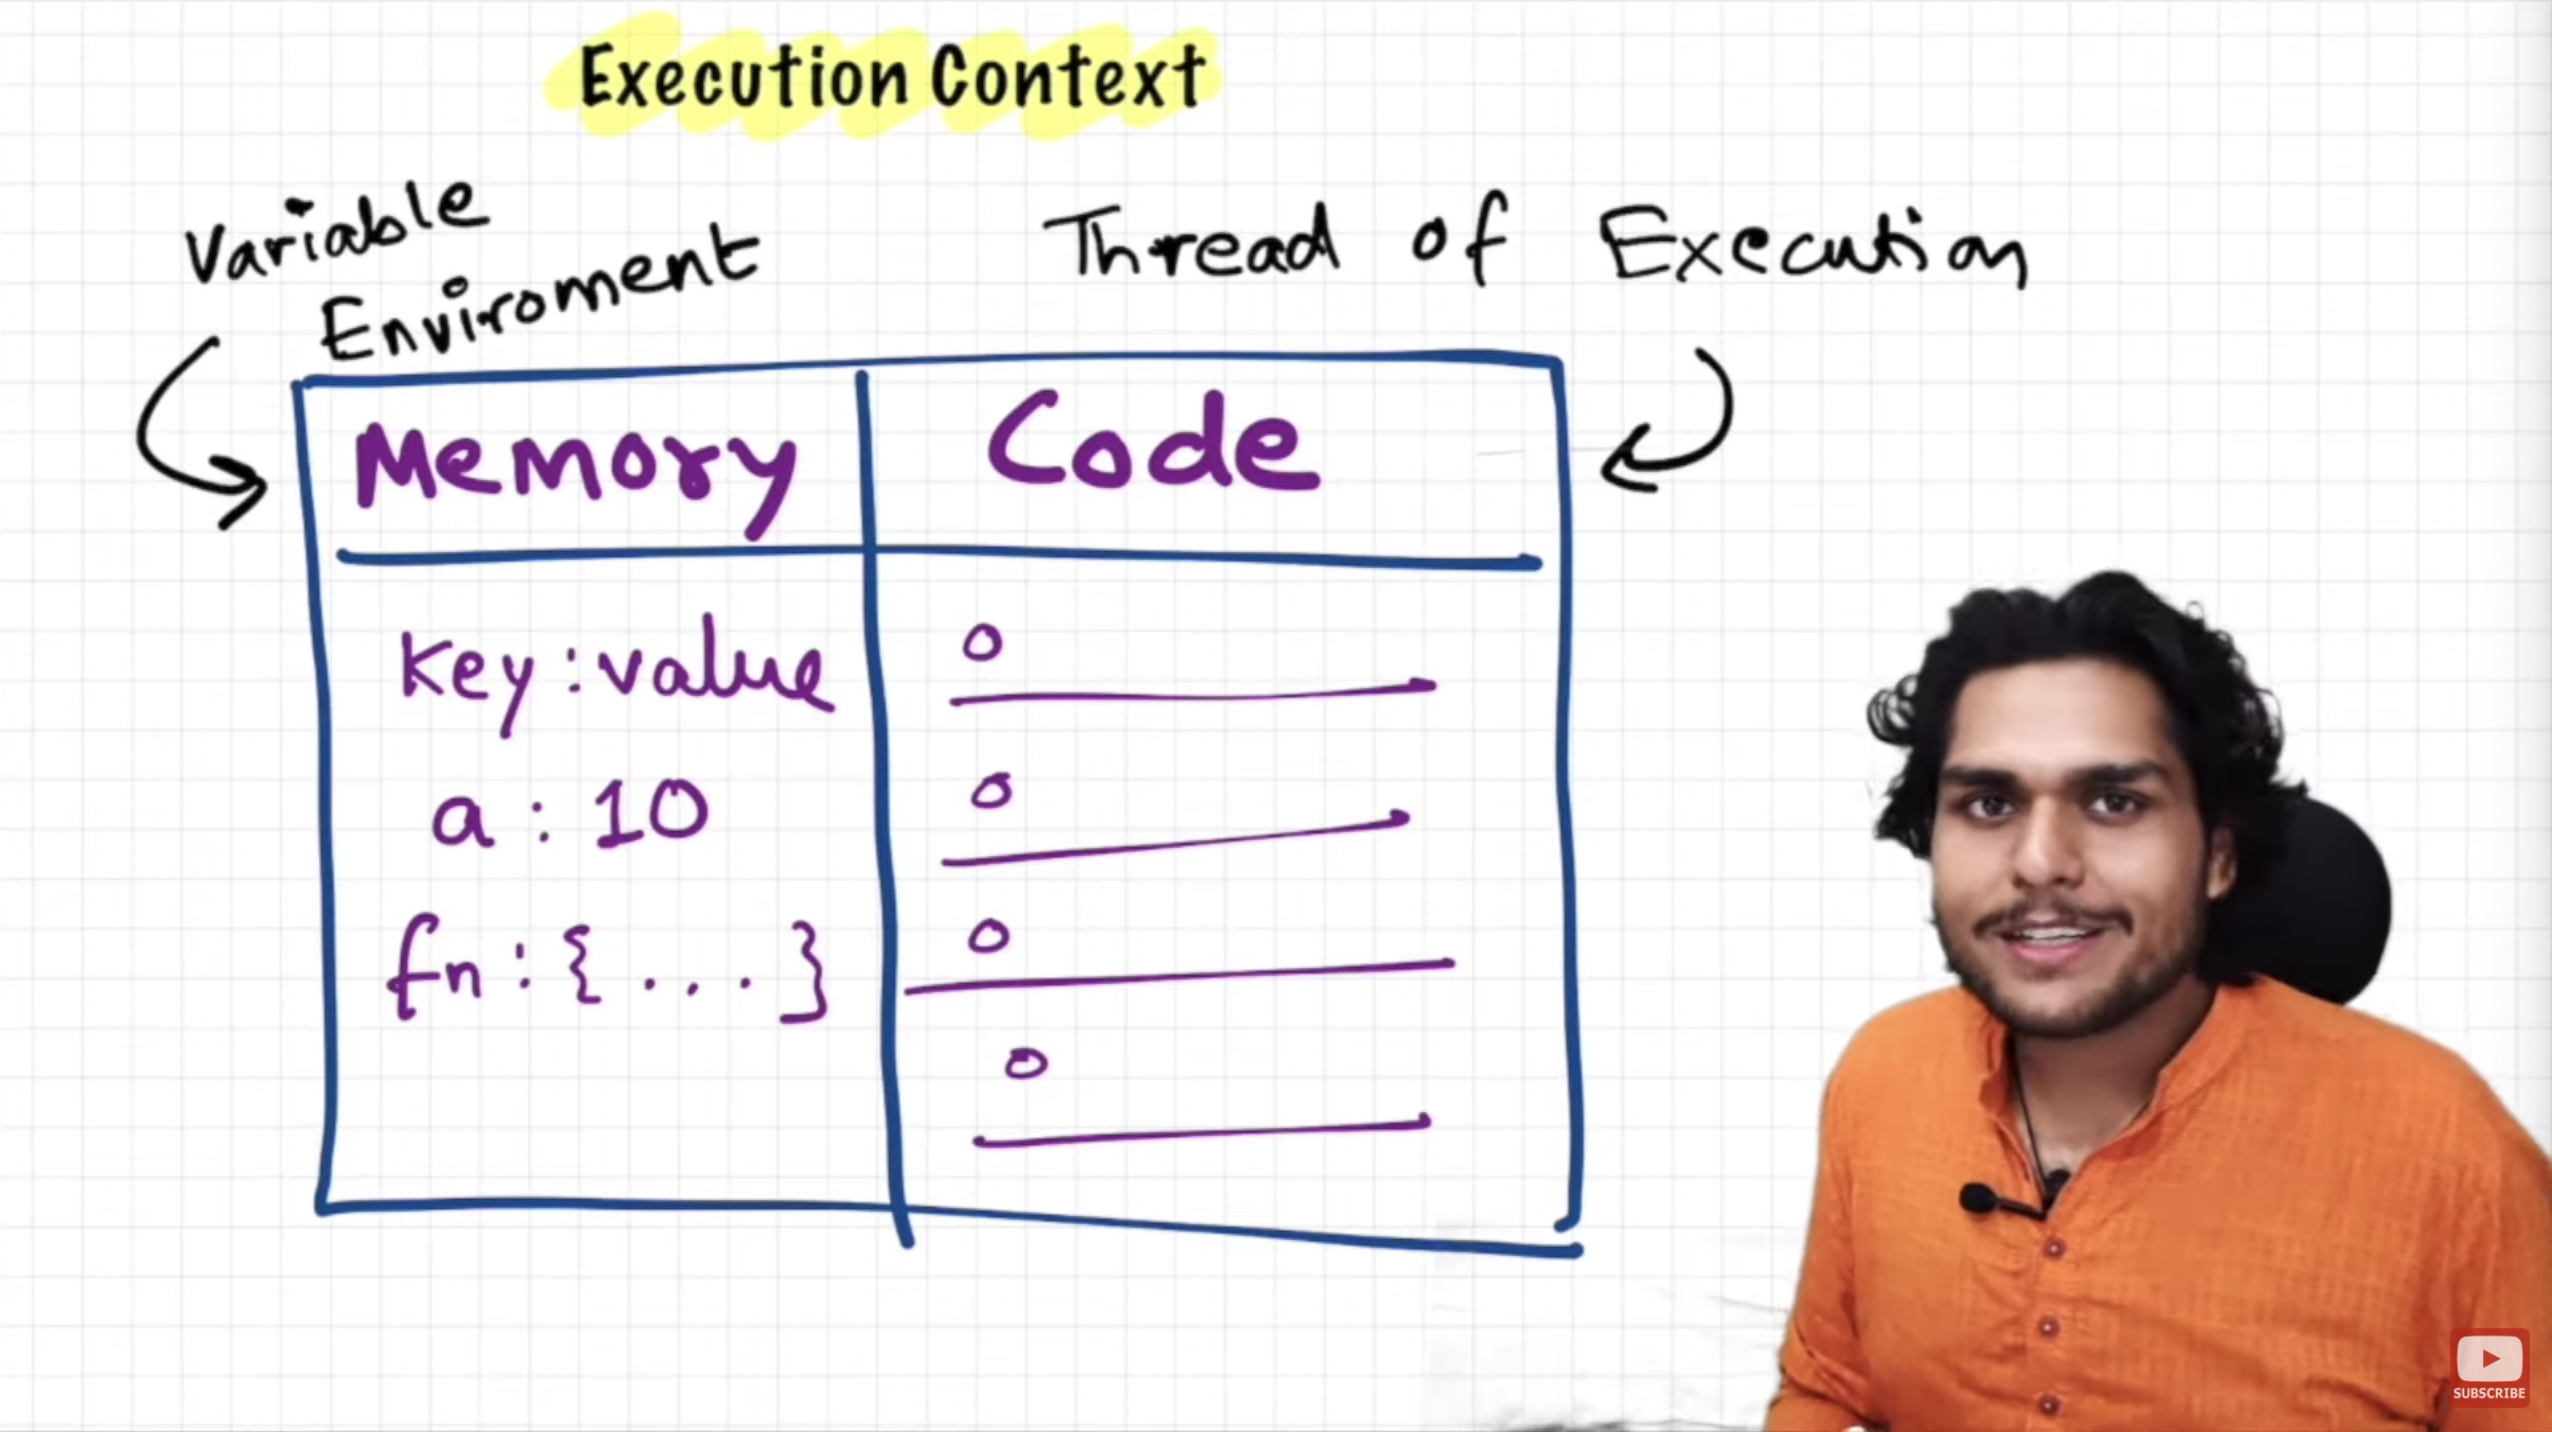 Execution Context
Variable
Enviroment
Thread of Execution
Memory
Code
key : value
a : 10
fn : { . . . }
SUBSCRIBE